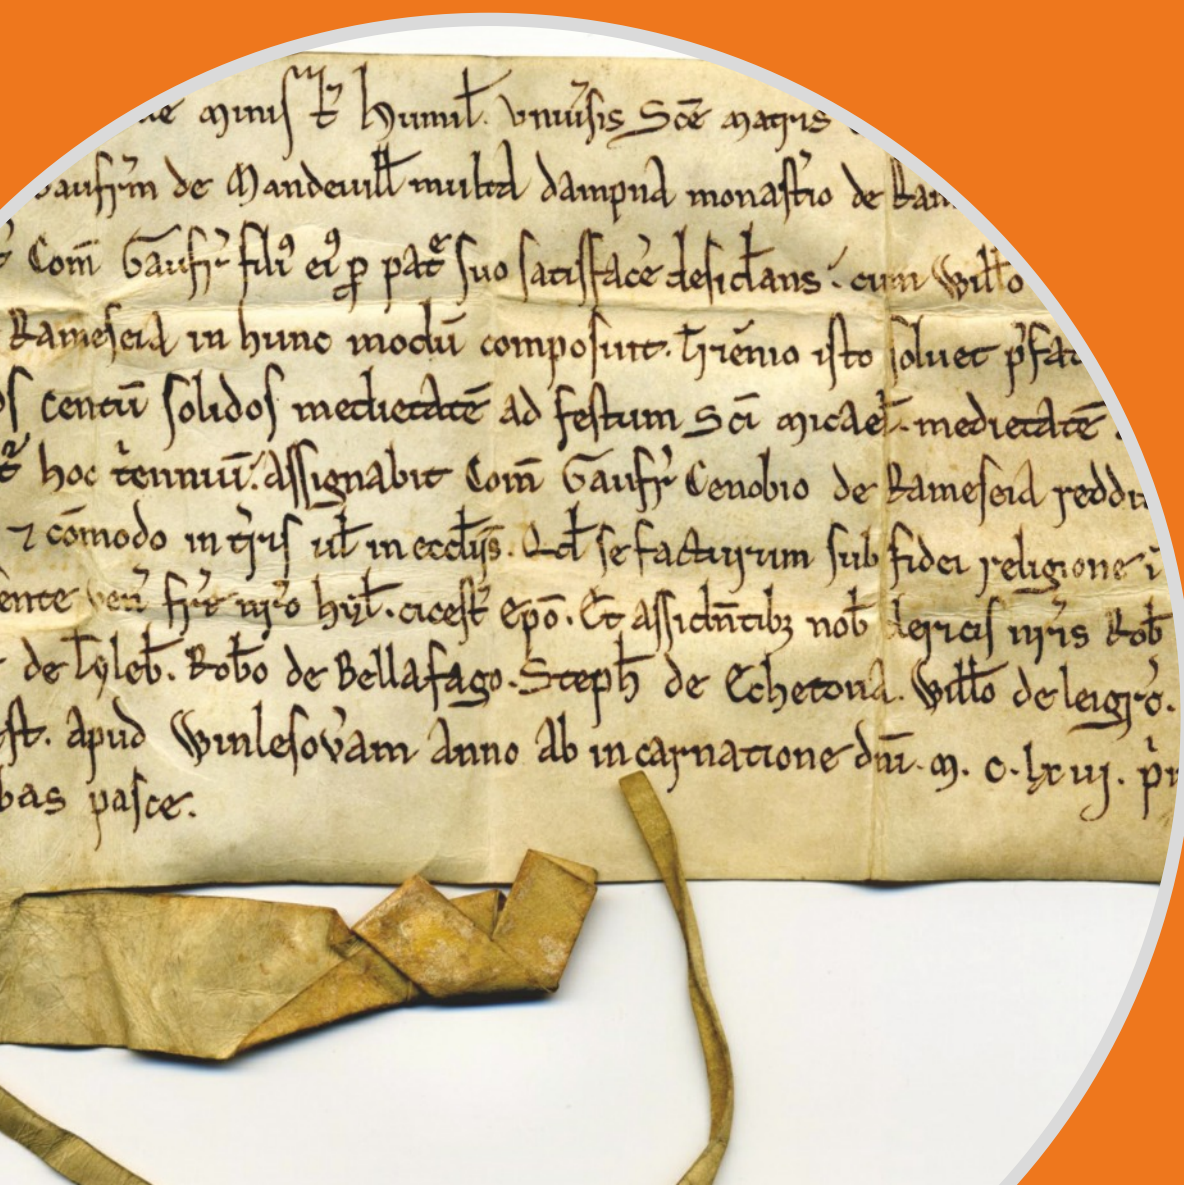 minist̄ humil̄. univ̄sis Sc̄e mat̄ris
Gaufr̄m de Mandevill̄ multa dampna monast̄io de Ram
Com̄ Gaufr̄ fili⁹ ei⁹ ꝓ pat̄e suo satisfac̄e desid̄ans. cum Will̄o
Rameseia in hunc modū composuit. T̄riēnio isto soluet p̄fat
centū solidos medietatē ad festum Sc̄i micael̄. medietatē
hoc t̄ienniū. Assignabit Com̄ Gaufr̄ Cenobio de Rameseia reddit
⁊ cōmodo in t̄ris ul̄ in eccl̄iis. Qd̄ se facturum sub fidei religione
ven̄ fr̄e nr̄o hyl̄. cicest̄ ep̄o. Et assid̄ntibꝫ nob̄ clericis nr̄is Rob̄
de Rob̄o de Bellafago. Steph̄ de Echetona. Will̄o de
apud Winlesov̄am Anno Ab incarnatione dn̄i. m. c. lx iij. p̄
pasce.